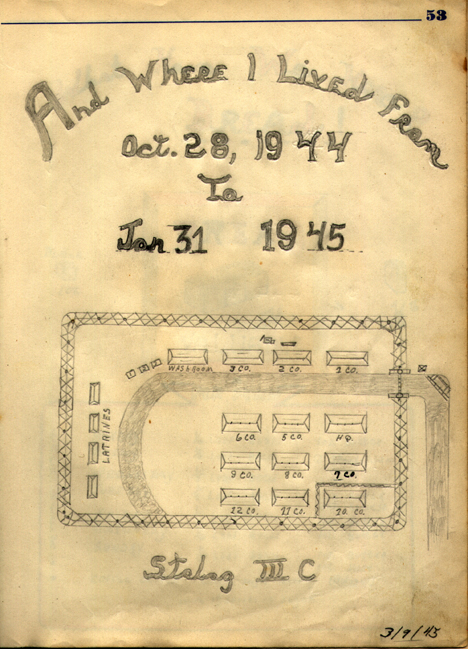 53
And Where I Lived From
Oct. 28, 1944
To
Jan 31 1945
WASHROOM 3 CO. 2 CO. 1 CO.
LATRINES
6 CO. 5 CO. HQ.
9 CO. 8 CO. 7 CO.
12 CO. 11 CO. 10 CO.
Stalag III C
3/9/45